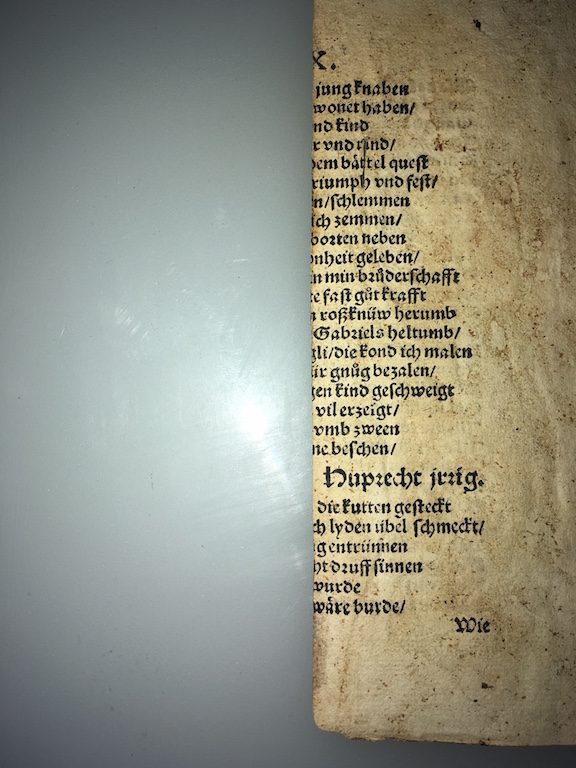 X.
jung knaben
wonet haben/
nd kind
r vnd rind/
dem båttel quest
riumph vnd fest/
n/schlemmen
ich zemmen/
borten neben
onheit geleben/
in min brůderschafft
te fast gůt krafft
n roßknüw herumb
Gabriels heltumb/
gli/die kond ich malen
ůr gnůg bezalen/
gen kind geschweigt
vil erzeigt/
vmb zween
ne beschen/
Huprecht jrrig.
die kutten gesteckt
ch lyden übel schmeckt/
g entrünnen
ht druff sinnen
wurde
wåre burde/
Wie